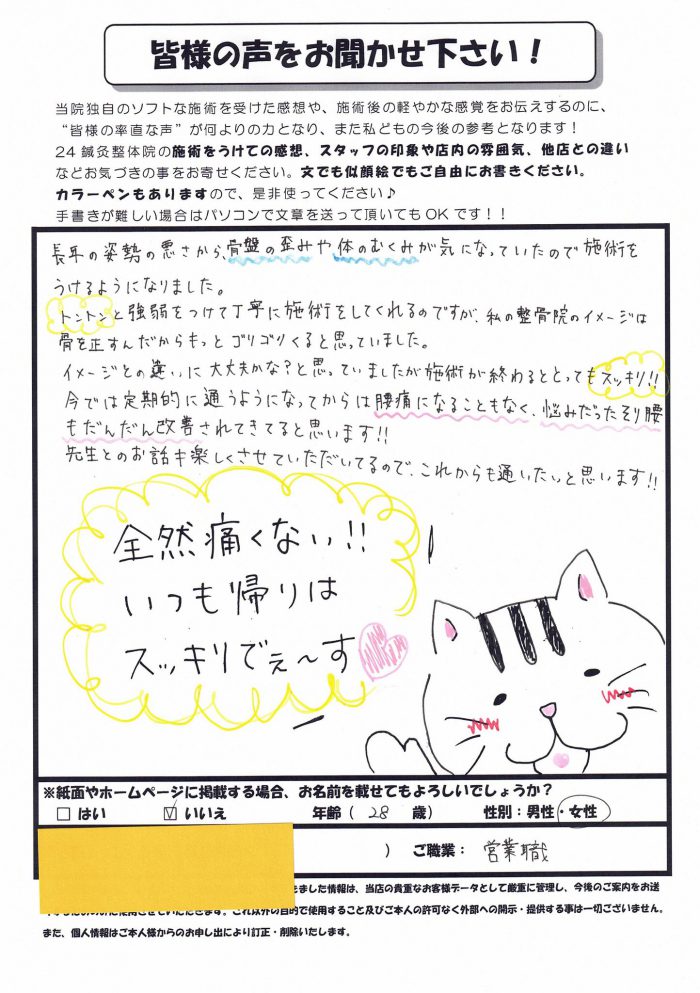 皆様の声をお聞かせ下さい！
当院独自のソフトな施術を受けた感想や、施術後の軽やかな感覚をお伝えするのに、
“皆様の率直な声”が何よりの力となり、また私どもの今後の参考となります！
24鍼灸整体院の施術をうけての感想、スタッフの印象や店内の雰囲気、他店との違い
などお気づきの事をお寄せください。文でも似顔絵でもご自由にお書きください。
カラーペンもありますので、是非使ってください♪
手書きが難しい場合はパソコンで文章を送って頂いてもOKです！！
長年の姿勢の悪さから、骨盤の歪みや体のむくみが気になっていたので施術を
うけるようになりました。
トントンと強弱をつけて丁寧に施術をしてくれるのですが、私の整骨院のイメージは
骨を正すんだからもっとゴリゴリくると思っていました。
イメージとの違いに大丈夫かな?と思っていましたが施術が終わるととってもスッキリ!!
今では定期的に通うようになってからは腰痛になることもなく、悩みだったそり腰
もだんだん改善されてきてると思います!!
先生とのお話も楽しくさせていただいてるので、これからも通いたいと思います!!
全然痛くない!!
いつも帰りは
スッキリでぇ〜す
※紙面やホームページに掲載する場合、お名前を載せてもよろしいでしょうか？
□ はい ☑ いいえ 年齢（ 28 歳） 性別：男性・女性
） ご職業： 営業職
ました情報は、当店の貴重なお客様データとして厳重に管理し、今後のご案内をお送
させていただきます。これ以外の目的で使用すること及びご本人の許可なく外部への開示・提供する事は一切ございません。
また、個人情報はご本人様からのお申し出により訂正・削除いたします。